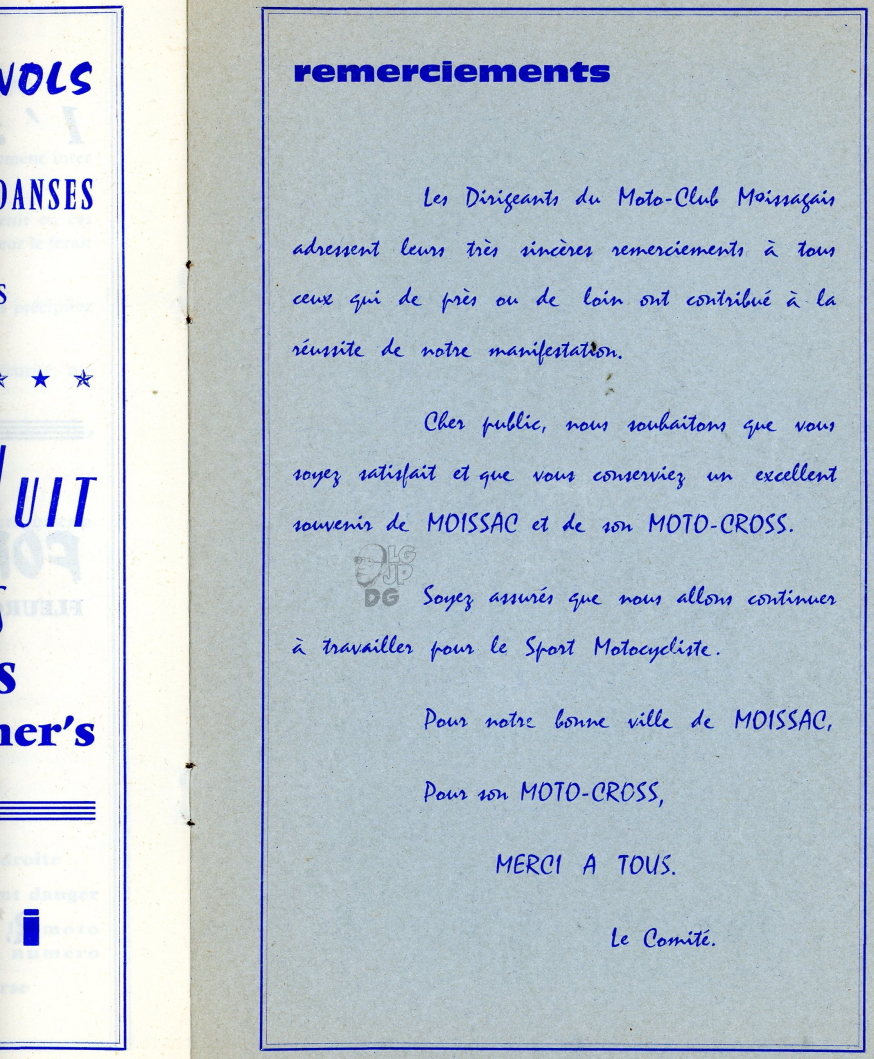 DANSES
UIT
remerciements
Les Dirigeants du Moto-Club Moissagais
adressent leurs très sincères remerciements à tous
ceux qui de près ou de loin ont contribué à la
réussite de notre manifestation.
Cher public, nous souhaitons que vous
soyez satisfait et que vous conserviez un excellent
souvenir de MOISSAC et de son MOTO-CROSS.
LG
JP
DG
Soyez assurés que nous allons continuer
à travailler pour le Sport Motocycliste.
Pour notre bonne ville de MOISSAC,
Pour son MOTO-CROSS,
MERCI A TOUS.
Le Comité.